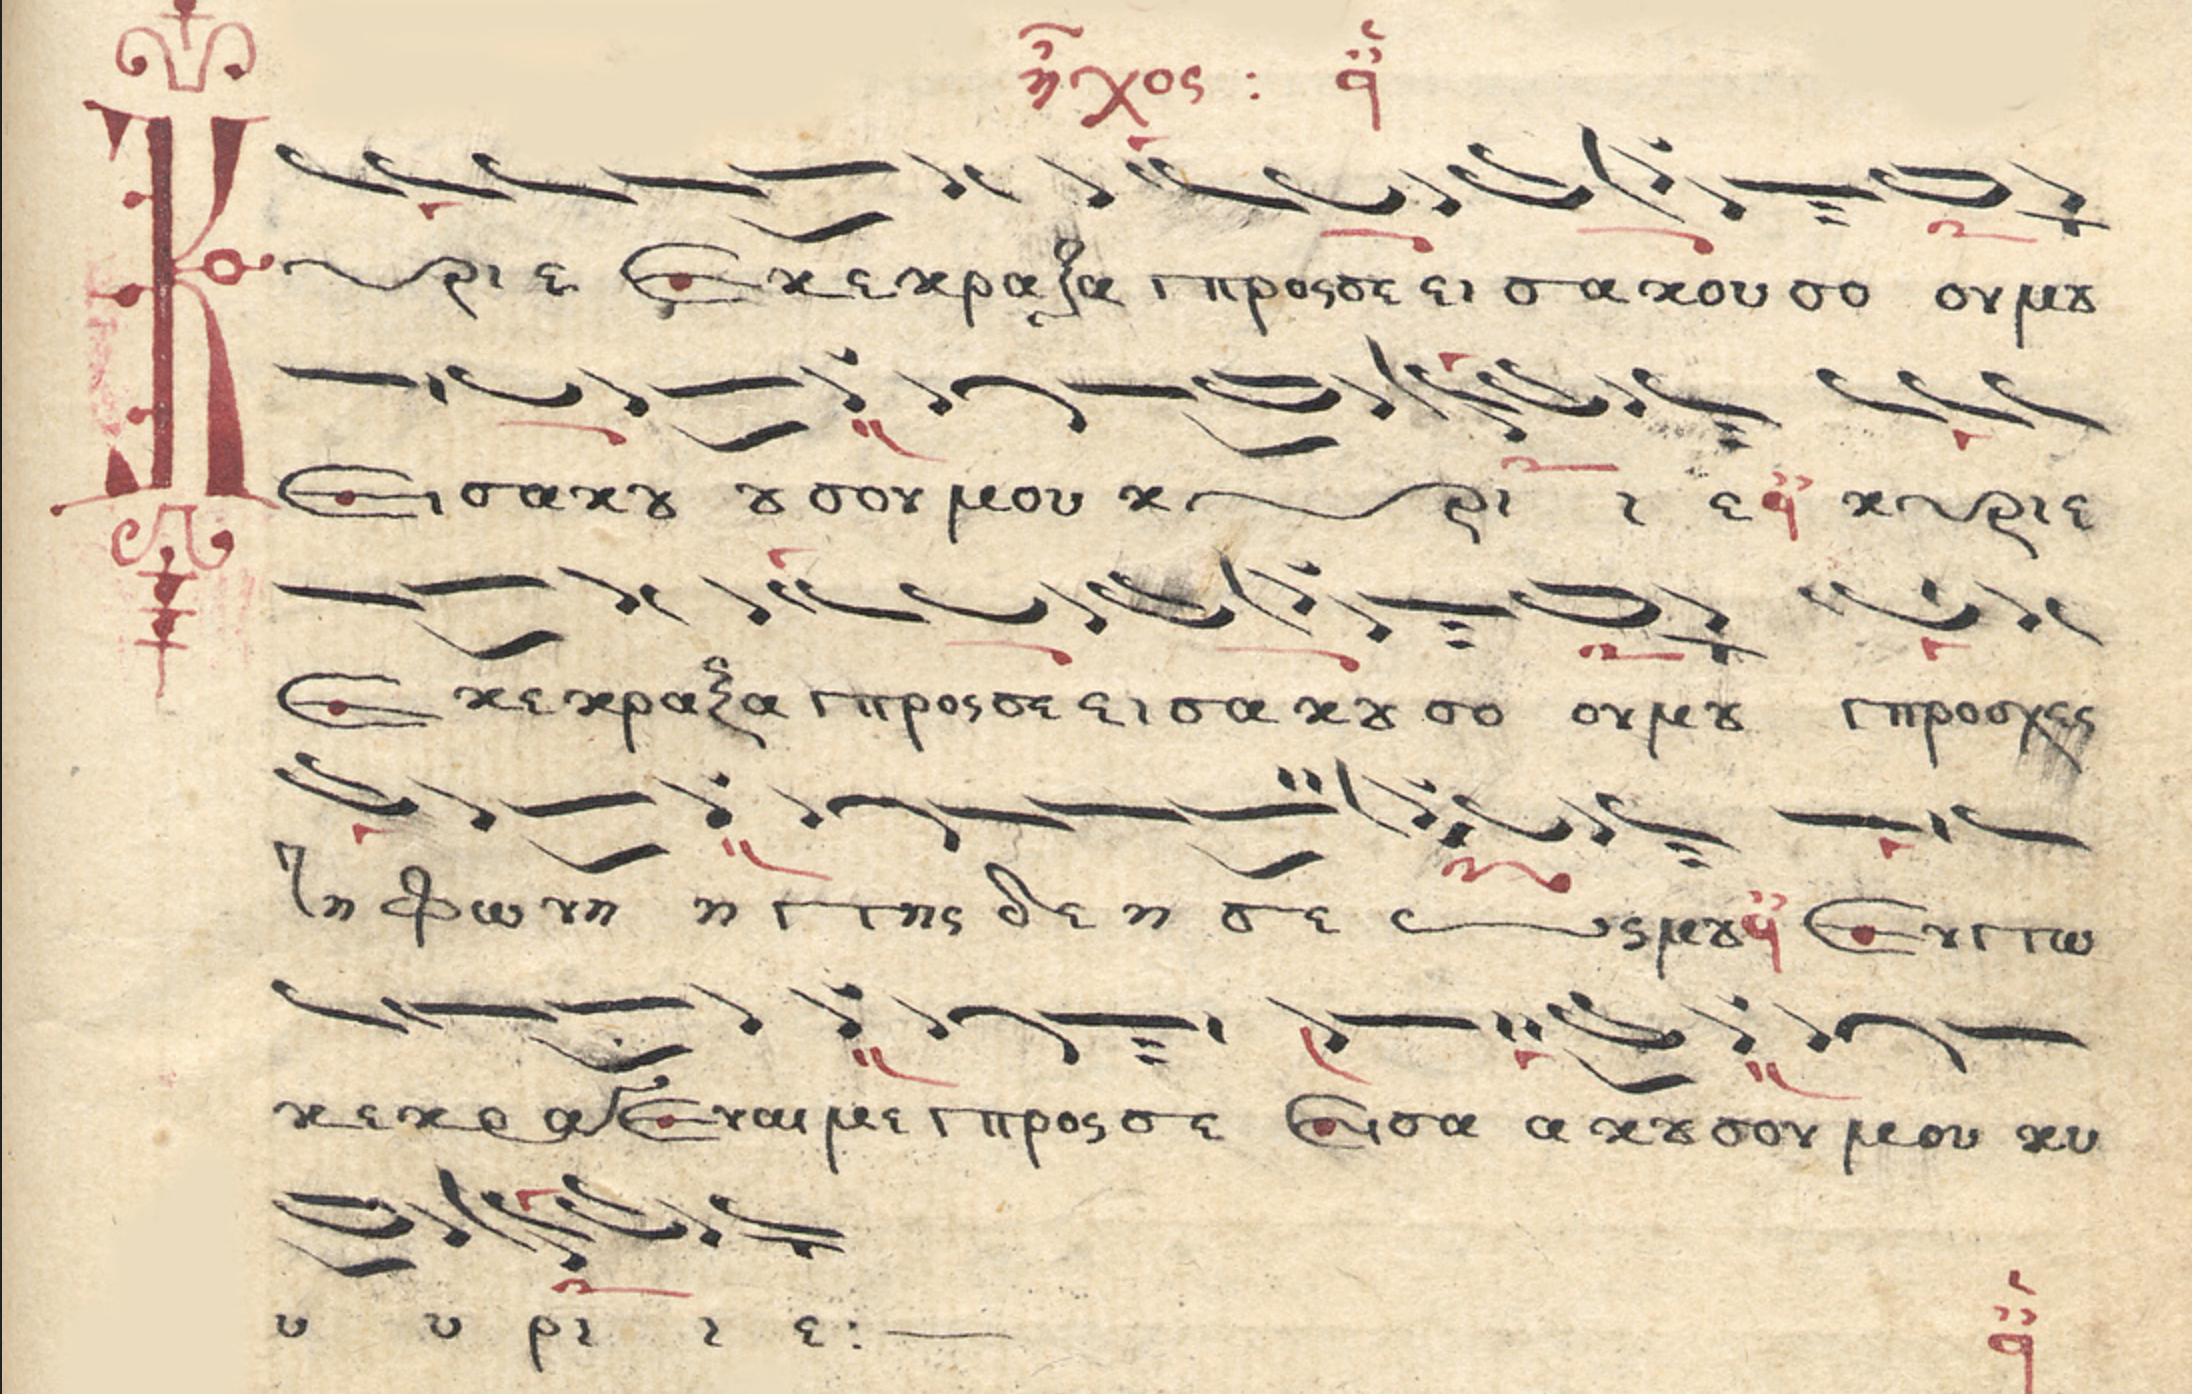 ἦχος : ᾳ
Κυριε Εκεκραξα προςσε εισακουσο ουμȣ
Εισακȣ ȣσουμου κυρι ι ε κυριε
Εκεκραξα προςσε εισακȣσο ουμȣ προσχες
τηφωνη ητης δεησε ωςμȣ Εντω
κεκραγεναιμε προςσε Εισα ακȣσουμου κυ
υ υρι ι ε:—